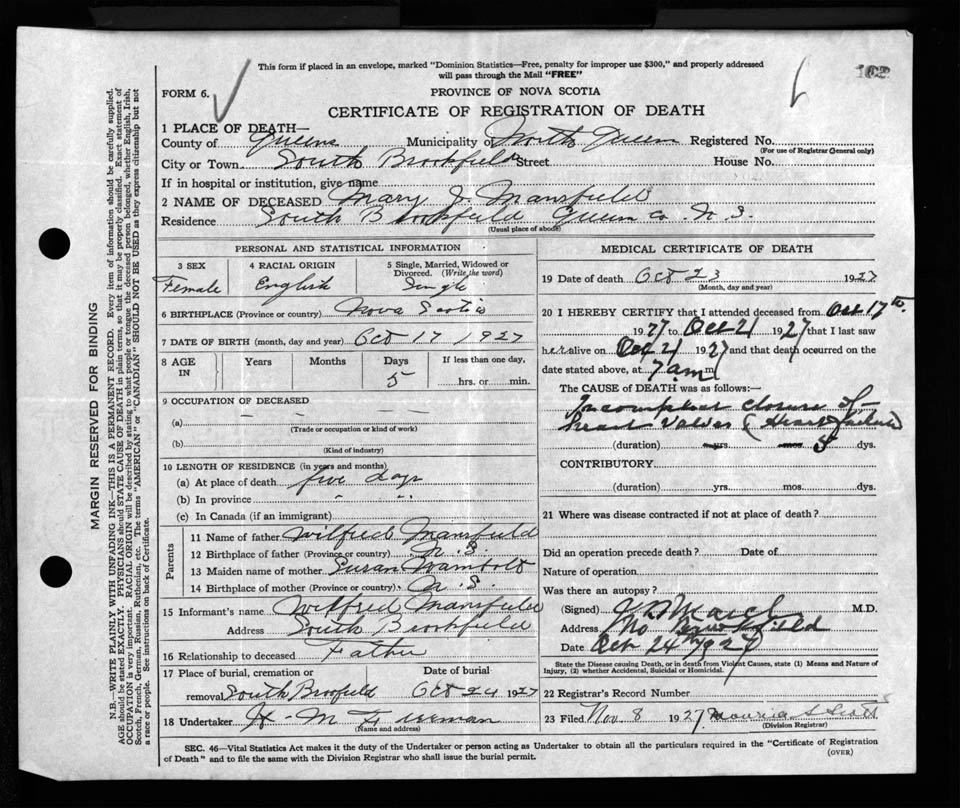 This form if placed in an envelope, marked "Dominion Statistics—Free, penalty for improper use $300," and properly addressed
will pass through the Mail "FREE"
162
FORM 6.
PROVINCE OF NOVA SCOTIA
CERTIFICATE OF REGISTRATION OF DEATH
1 PLACE OF DEATH—
County of Queens Municipality of North Queens Registered No.
(For use of Registrar General only)
City or Town South Brookfield Street House No.
If in hospital or institution, give name
2 NAME OF DECEASED Mary J. Mansfield
Residence South Brookfield Queens Co. N. S.
(Usual place of abode)
PERSONAL AND STATISTICAL INFORMATION
3 SEX
Female
4 RACIAL ORIGIN
English
5 Single, Married, Widowed or
Divorced. (Write the word)
Single
6 BIRTHPLACE (Province or country) Nova Scotia
7 DATE OF BIRTH (month, day and year) Oct 17 1927
8 AGE IN
Years Months Days If less than one day,
5 hrs. or min.
9 OCCUPATION OF DECEASED
(a) — — — —
(Trade or occupation or kind of work)
(b)
(Kind of industry)
10 LENGTH OF RESIDENCE (in years and months)
(a) At place of death five days
(b) In province " "
(c) In Canada (if an immigrant)
Parents
11 Name of father Wilfred Mansfield
12 Birthplace of father (Province or country) N. S.
13 Maiden name of mother Susan Wambolt
14 Birthplace of mother (Province or country) N. S.
15 Informant's name Wilfred Mansfield
Address South Brookfield
16 Relationship to deceased Father
17 Place of burial, cremation or Date of burial
removal South Broofield Oct 24 1927
18 Undertaker H. M. Freeman
(Name and address)
MEDICAL CERTIFICATE OF DEATH
19 Date of death Oct 23 1927
(Month, day and year)
20 I HEREBY CERTIFY that I attended deceased from Oct 17th
1927 to Oct 21 1927 that I last saw
her alive on Oct 21 1927 and that death occurred on the
date stated above, at 7 am m
The CAUSE of DEATH was as follows:—
Incomplete closure of
heart valves (Heart failure)
(duration) yrs. mos. 5 dys.
CONTRIBUTORY
(duration) yrs. mos. dys.
21 Where was disease contracted if not at place of death?
Did an operation precede death? Date of
Nature of operation
Was there an autopsy?
(Signed) M.D.
Address No Brookfield
Date Oct 24 1927
State the Disease causing Death, or in death from Violent Causes, state (1) Means and Nature of
Injury, (2) whether Accidental, Suicidal or Homicidal.
22 Registrar's Record Number
23 Filed Nov. 8 1927
(Division Registrar)
SEC. 46—Vital Statistics Act makes it the duty of the Undertaker or person acting as Undertaker to obtain all the particulars required in the "Certificate of Registration
of Death" and to file the same with the Division Registrar who shall issue the burial permit.
(OVER)
MARGIN RESERVED FOR BINDING
N.B.—WRITE PLAINLY WITH UNFADING INK—THIS IS A PERMANENT RECORD. Every item of information should be carefully supplied.
AGE should be stated EXACTLY. PHYSICIANS should STATE CAUSE OF DEATH in plain terms, so that it may be properly classified. Exact statement of
OCCUPATION is very important. RACIAL ORIGIN will be described by stating to what people or tongue the deceased person belonged, whether English, Irish,
Scotch, French, German, Russian, Ruthenian, etc. The terms "AMERICAN" or "CANADIAN" SHOULD NOT BE USED as they express citizenship but not
a race or people. See instructions on back of Certificate.